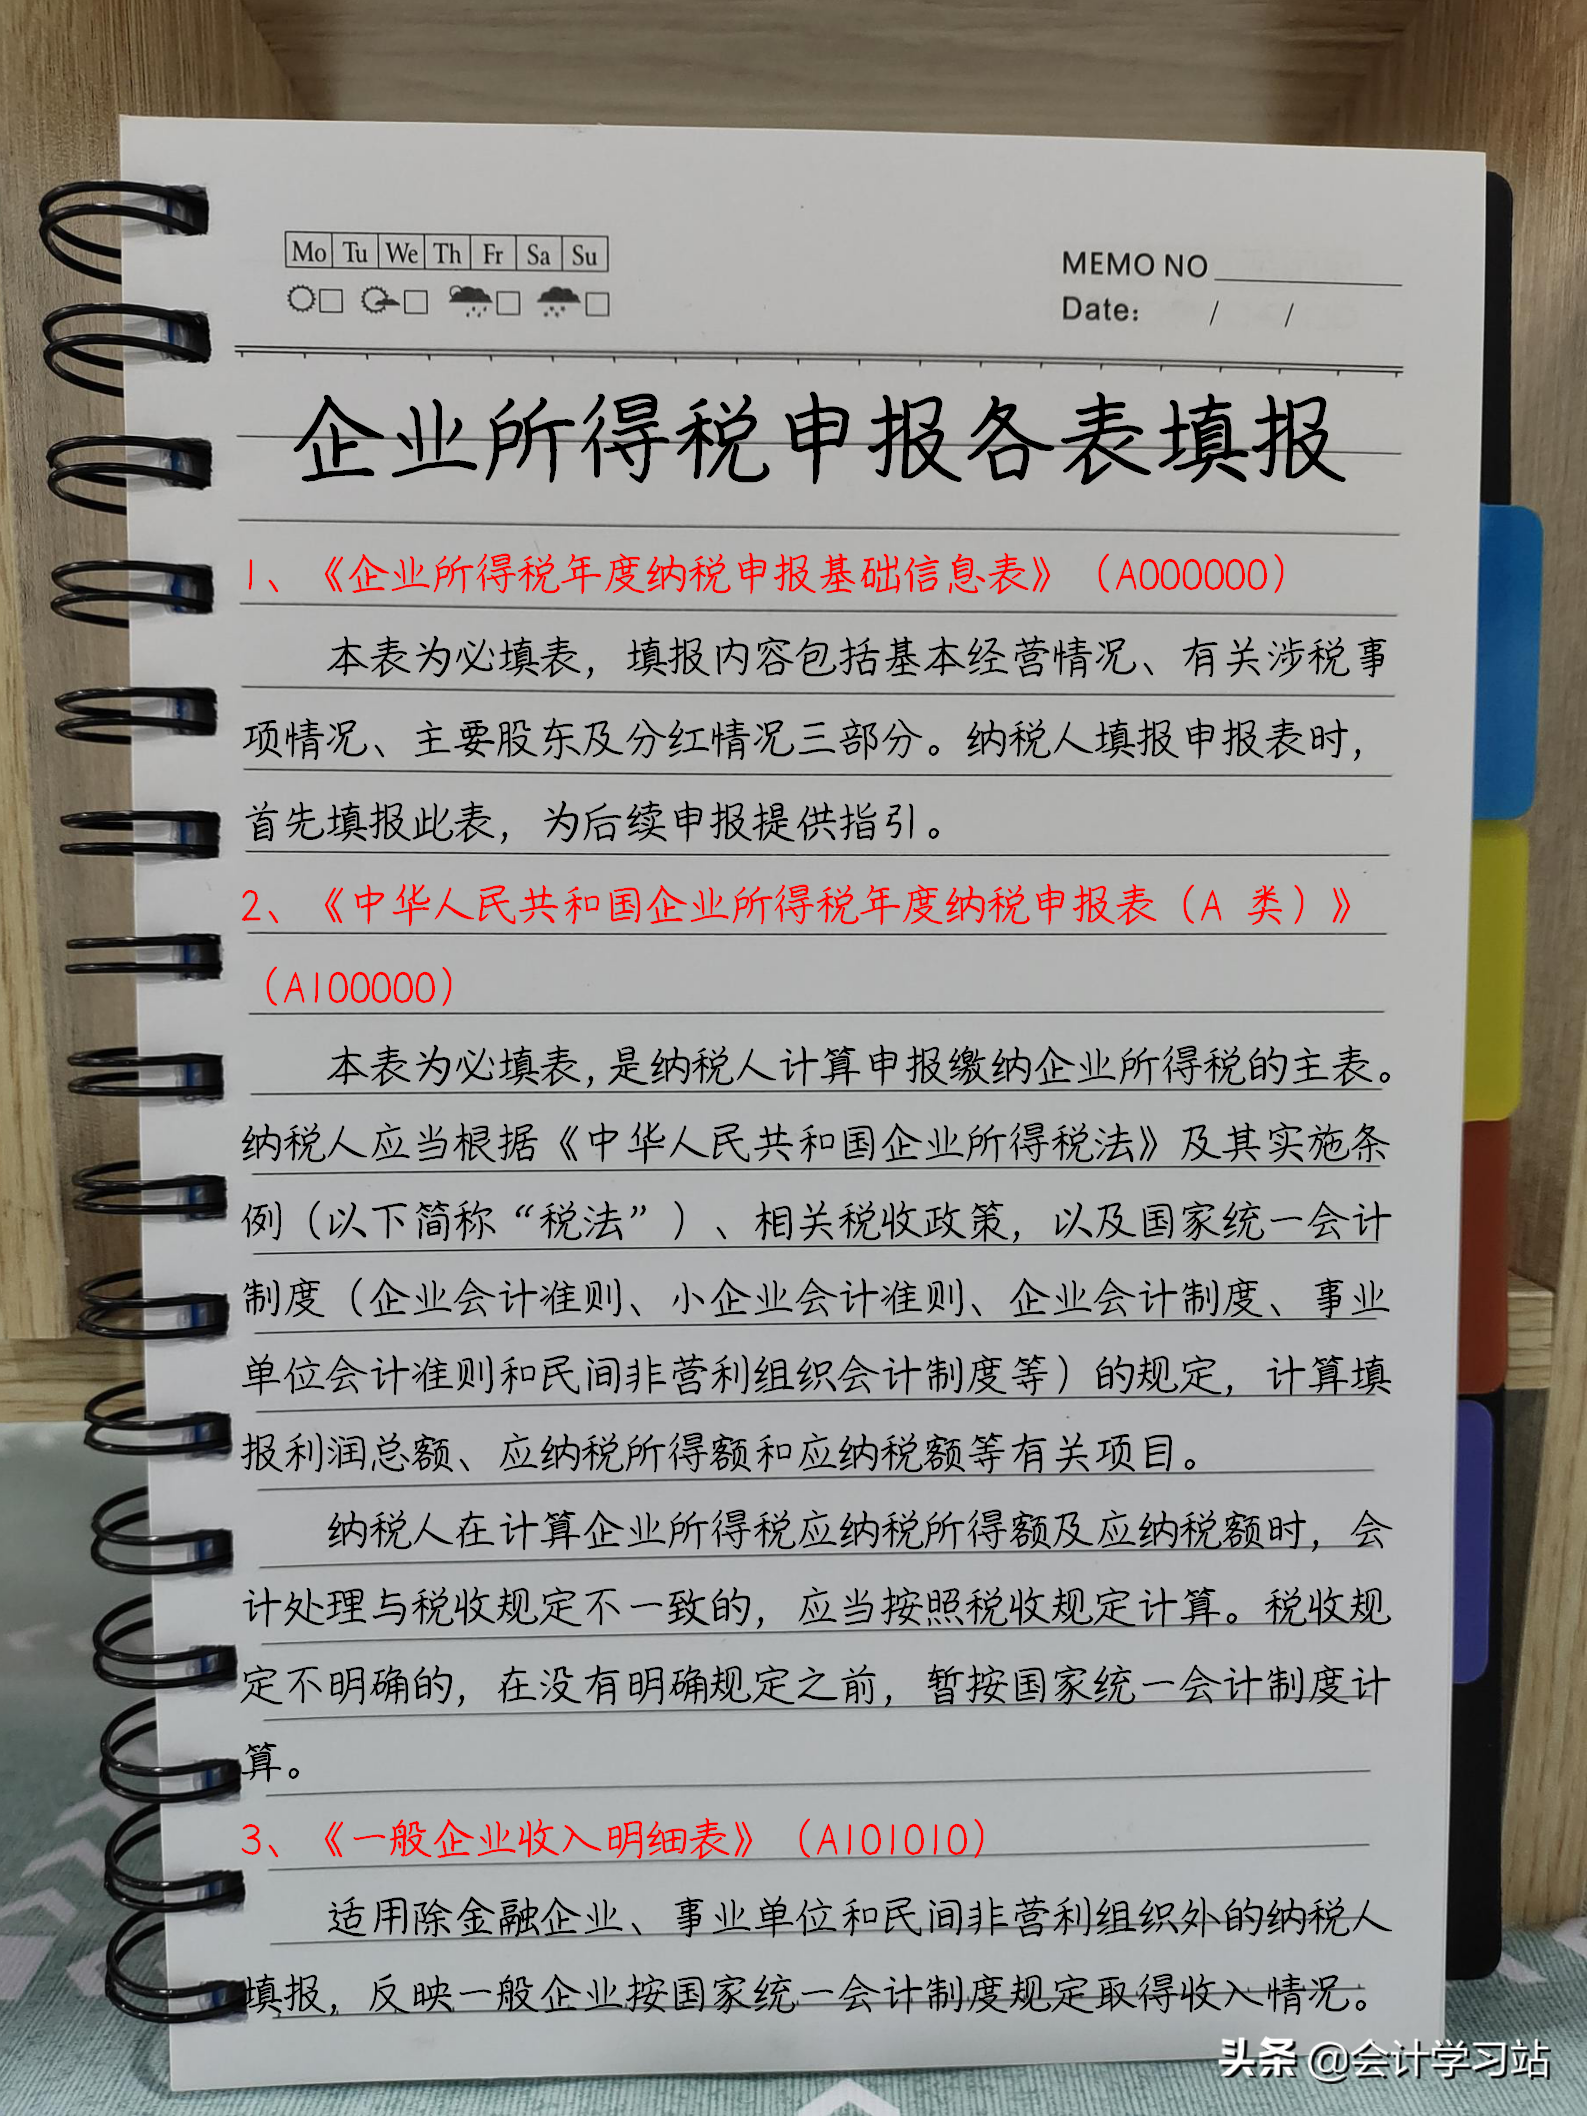 Mo Tu We Th Fr Sa Su
MEMO NO
Date: / /
企业所得税申报各表填报
1、《企业所得税年度纳税申报基础信息表》（A000000）
本表为必填表，填报内容包括基本经营情况、有关涉税事
项情况、主要股东及分红情况三部分。纳税人填报申报表时，
首先填报此表，为后续申报提供指引。
2、《中华人民共和国企业所得税年度纳税申报表（A 类）》
（A100000）
本表为必填表，是纳税人计算申报缴纳企业所得税的主表。
纳税人应当根据《中华人民共和国企业所得税法》及其实施条
例（以下简称“税法”）、相关税收政策，以及国家统一会计
制度（企业会计准则、小企业会计准则、企业会计制度、事业
单位会计准则和民间非营利组织会计制度等）的规定，计算填
报利润总额、应纳税所得额和应纳税额等有关项目。
纳税人在计算企业所得税应纳税所得额及应纳税额时，会
计处理与税收规定不一致的，应当按照税收规定计算。税收规
定不明确的，在没有明确规定之前，暂按国家统一会计制度计
算。
3、《一般企业收入明细表》（A101010）
适用除金融企业、事业单位和民间非营利组织外的纳税人
填报，反映一般企业按国家统一会计制度规定取得收入情况。
头条 @会计学习站